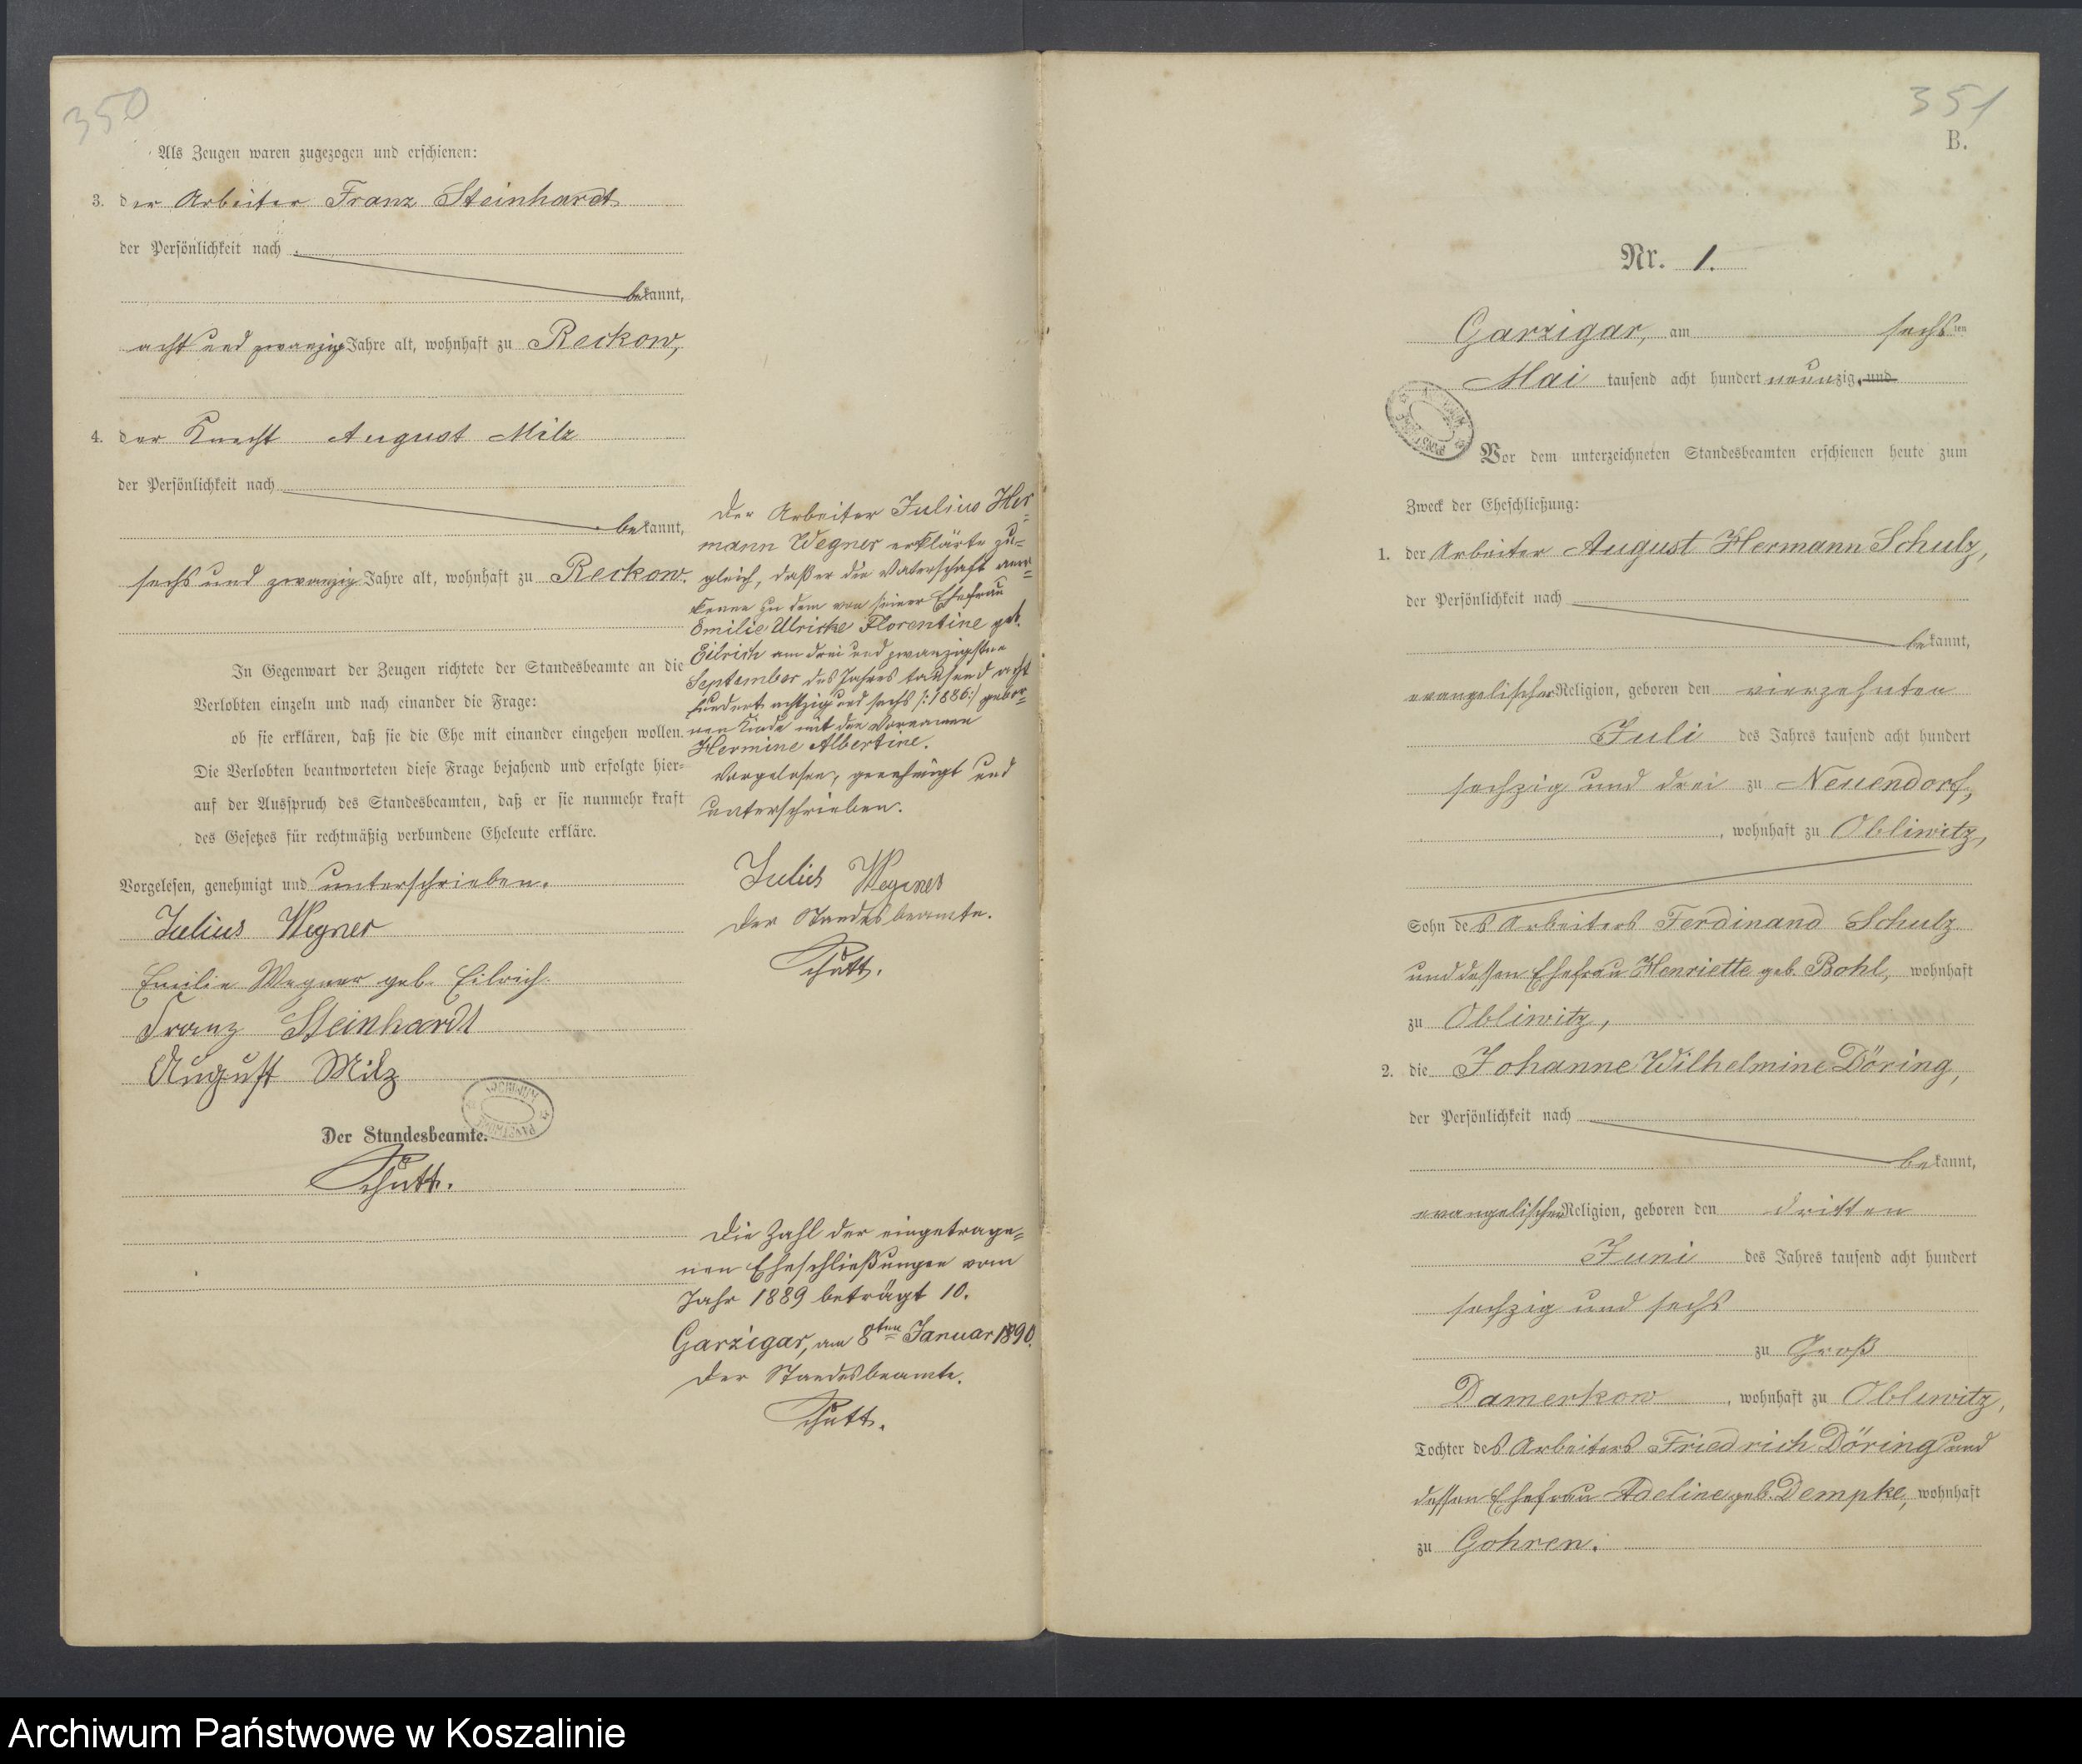 350
Als Zeugen waren zugezogen und erschienen:
3. der Arbeiter Franz Steinhardt
der Persönlichkeit nach
bekannt,
acht und zwanzig Jahre alt, wohnhaft zu Reckow,
4. der Knecht August Milz
der Persönlichkeit nach
bekannt,
sechs und zwanzig Jahre alt, wohnhaft zu Reckow.
In Gegenwart der Zeugen richtete der Standesbeamte an die
Verlobten einzeln und nach einander die Frage:
ob sie erklären, daß sie die Ehe mit einander eingehen wollen.
Die Verlobten beantworteten diese Frage bejahend und erfolgte hier-
auf der Ausspruch des Standesbeamten, daß er sie nunmehr kraft
des Gesetzes für rechtmäßig verbundene Eheleute erkläre.
Vorgelesen, genehmigt und unterschrieben.
Julius Wegner
Emilie Wegner geb. Eilrich.
Franz Steinhardt
August Milz
Der Standesbeamte.
Schütt.
Der Arbeiter Julius Her-
mann Wegner erklärte zu-
gleich, daß er die Vaterschaft aner-
kenne zu dem von seiner Ehefrau
Emilie Ulricke Florentine geb.
Eilrich am drei und zwanzigsten
September des Jahres tausend acht
hundert achtzig und sechs /:1886:/ gebor-
nen Kinde mit den Vornamen
Hermine Albertine.
Vorgelesen, genehmigt und
unterschrieben.
Julius Wegner
Der Standesbeamte.
Schütt.
Die Zahl der eingetrage-
nen Eheschließungen vom
Jahr 1889 beträgt 10.
Garzigar, am 8ten Januar 1890.
Der Standesbeamte.
Schütt.
351
B.
Nr. 1.
Garzigar, am sechsten
Mai tausend acht hundert neunzig und
Vor dem unterzeichneten Standesbeamten erschienen heute zum
Zweck der Eheschließung:
1. der Arbeiter August Hermann Schulz,
der Persönlichkeit nach
bekannt,
evangelischer Religion, geboren den vierzehnten
Juli des Jahres tausend acht hundert
sechzig und drei zu Neuendorf,
, wohnhaft zu Obliwitz,
Sohn des Arbeiters Ferdinand Schulz
und dessen Ehefrau Henriette geb. Bohl, wohnhaft
zu Obliwitz,
2. die Johanne Wilhelmine Döring,
der Persönlichkeit nach
bekannt,
evangelischer Religion, geboren den dritten
Juni des Jahres tausend acht hundert
sechzig und sechs
zu Groß
Damerkow, wohnhaft zu Obliwitz,
Tochter des Arbeiters Friedrich Döring und
dessen Ehefrau Adeline geb. Dempke, wohnhaft
zu Gohren.
Archiwum Państwowe w Koszalinie